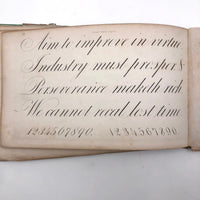 Aim to improve in virtue
Industry must prosper &
Perseverance maketh rich
We cannot recal lost time
1234567890. 1234567890